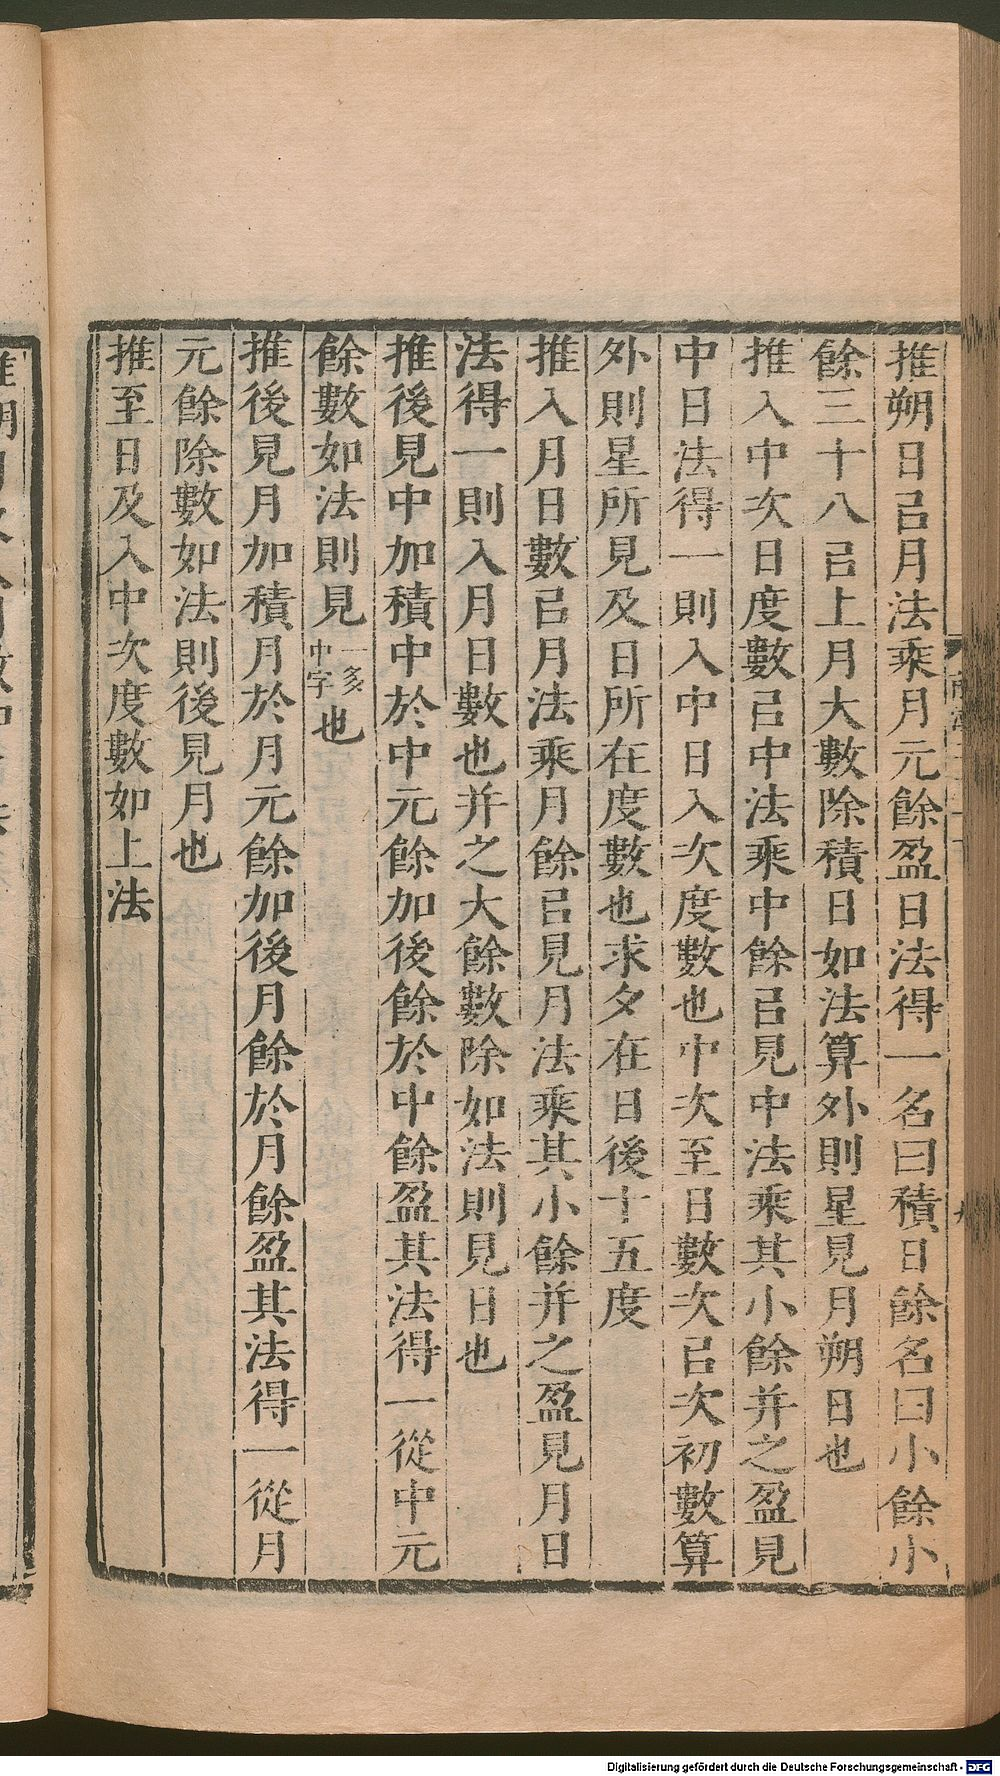 推朔日㠯月法乘月元餘盈日法得一名曰積日餘名曰小餘小
餘三十八㠯上月大數除積日如法算外則星見月朔日也
推入中次日度數㠯中法乘中餘㠯見中法乘其小餘并之盈見
中日法得一則入中日入次度數也中次至日數次㠯次初數算
外則星所見及日所在度數也求夕在日後十五度
推入月日數㠯月法乘月餘㠯見月法乘其小餘并之盈見月日
法得一則入月日數也并之大餘數除如法則見日也
推後見中加積中於中元餘加後餘於中餘盈其法得一從中元
餘數如法則見一多中字也
推後見月加積月於月元餘加後月餘於月餘盈其法得一從月
元餘除數如法則後見月也
推至日及入中次度數如上法
Digitalisierung gefördert durch die Deutsche Forschungsgemeinschaft - DFG